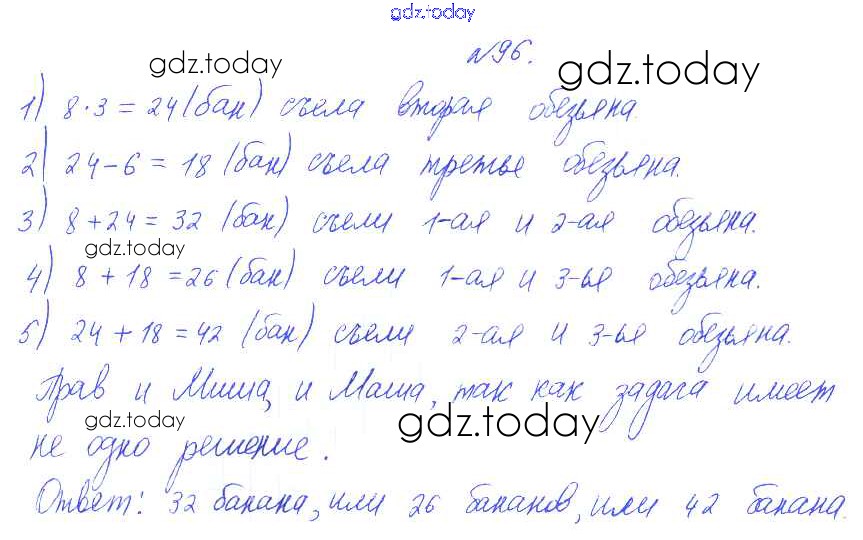 gdz.today
№96.
gdz.today
gdz.today
1) 8·3=24(бан) съела вторая обезьяна.
2) 24-6=18 (бан) съела третье обезьяна.
3) 8+24=32 (бан) съели 1-ая и 2-ая обезьяна.
gdz.today
4) 8+18=26(бан) съели 1-ая и 3-ья обезьяна.
5) 24+18=42 (бан) съели 2-ая и 3-ья обезьяна.
Прав и Миша, и Маша, так как задача имеет
gdz.today
gdz.today
не одно решение.
Ответ: 32 банана, или 26 бананов, или 42 банана.